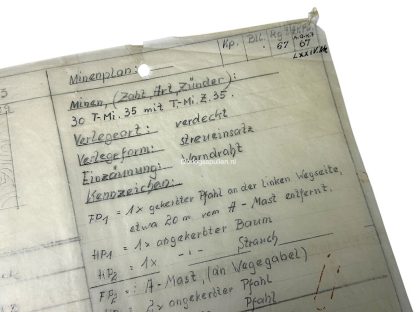 Minenplan:
Kp. Btl.
67 67
LXXIV.AK
Minen, (Zahl, Art, Zünder):
30 T.-Mi. 35 mit T.-Mi.Z. 35.
Verlegeort: verdeckt
Verlegeform: streueinsatz
Einzäunung: Warndraht
Kennzeichen:
FP1 = 1x gekerbter Pfahl an der linken Wegseite,
etwa 20 m vom A-Mast entfernt.
HP1 = 1x angekerbter Baum
HP2 = 1x -"- Strauch
FP2: A-Mast, (an Wegegabel)
angekerbter Pfahl
Pfahl